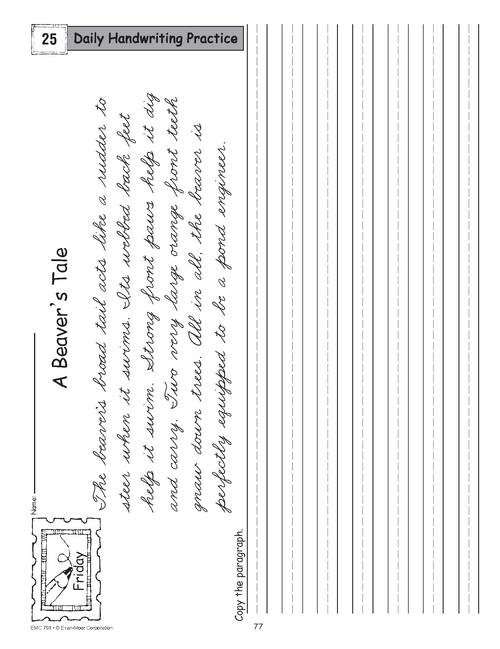 25
Daily Handwriting Practice
Name:
Friday
A Beaver's Tale
The beaver's broad tail acts like a rudder to
steer when it swims. Its webbed back feet
help it swim. Strong front paws help it dig
and carry. Two very large orange front teeth
gnaw down trees. All in all, the beaver is
perfectly equipped to be a pond engineer.
Copy the paragraph.
EMC 791 • © Evan-Moor Corporation
77